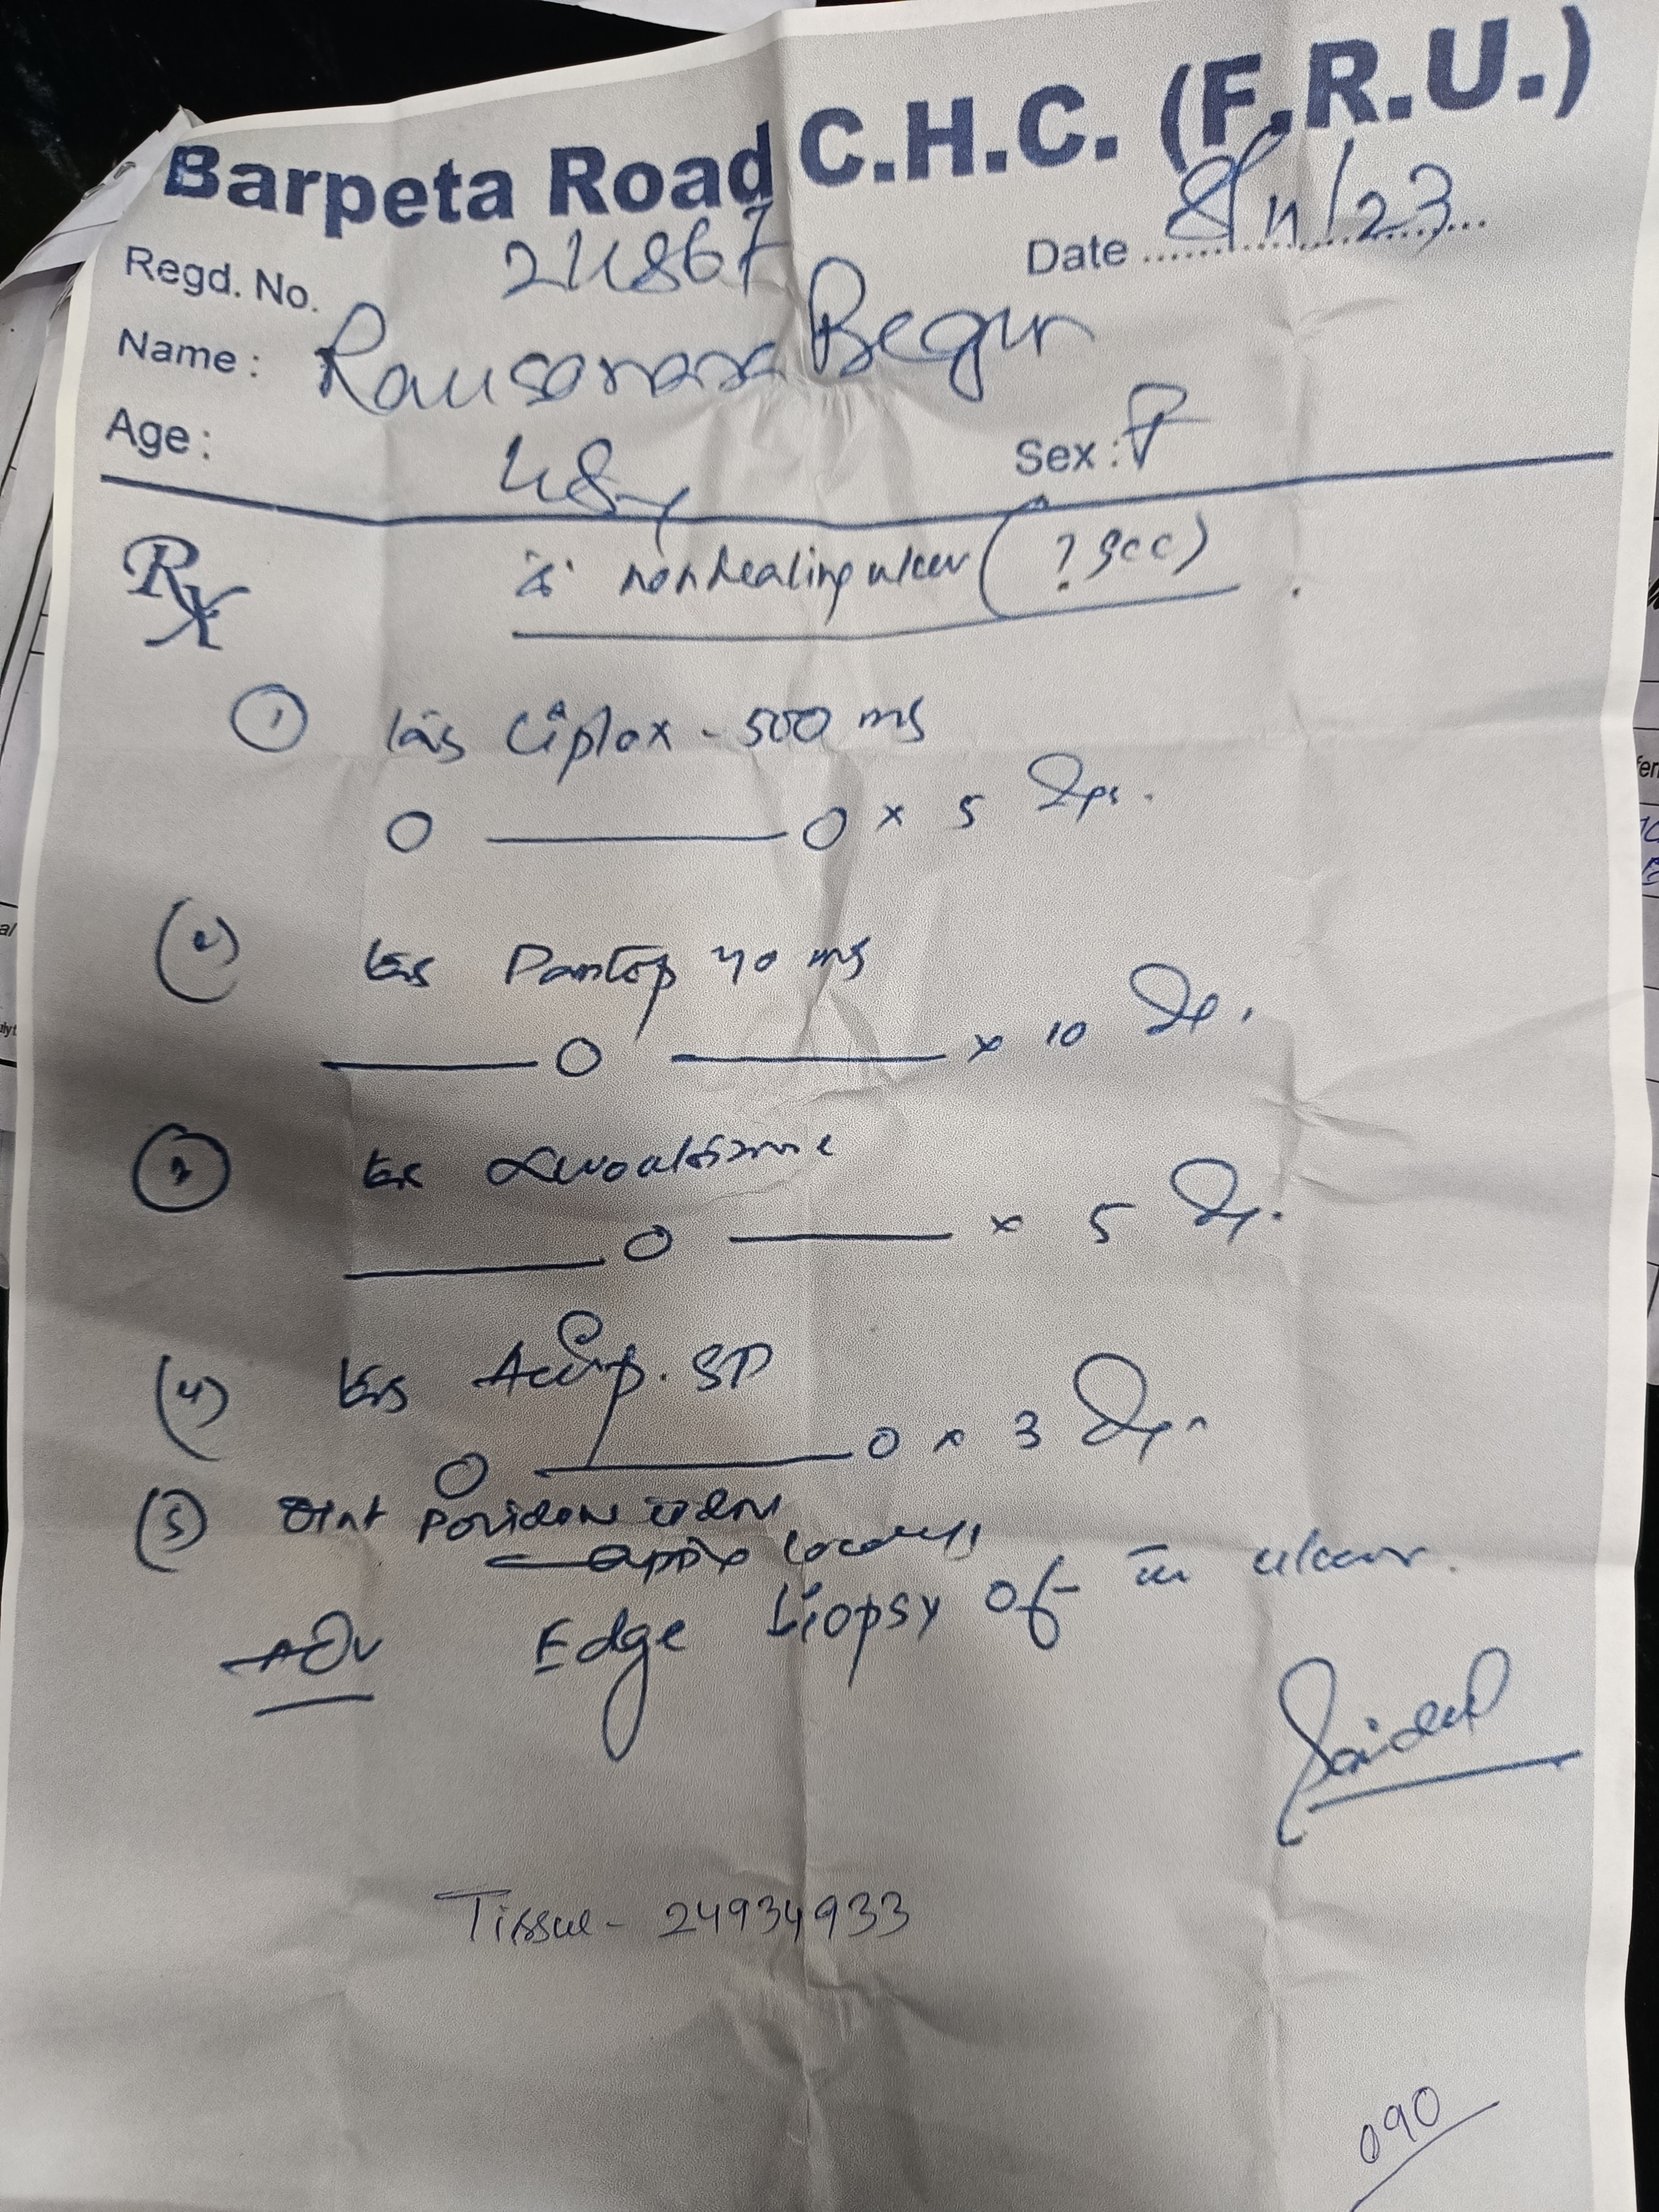 Barpeta Road C.H.C. (F.R.U.)
Regd. No. 24867 Date 8/11/23
Name : Begum
Age : 48y Sex : F
Rx
c̄ nonhealing ulcer (? SCC)
① Tab Ciplox - 500 mg
O ——— O x 5 Days.
(2) Tab Pantop 40 mg
—— O —— x 10 Days.
③ Tab
—— O —— x 5 Days.
(4) Tab SP
O ——— O x 3 Days
(5) Oint Povidone Iodine
— apply locally
Adv Edge biopsy of the ulcer.
Tissue - 24934933
090